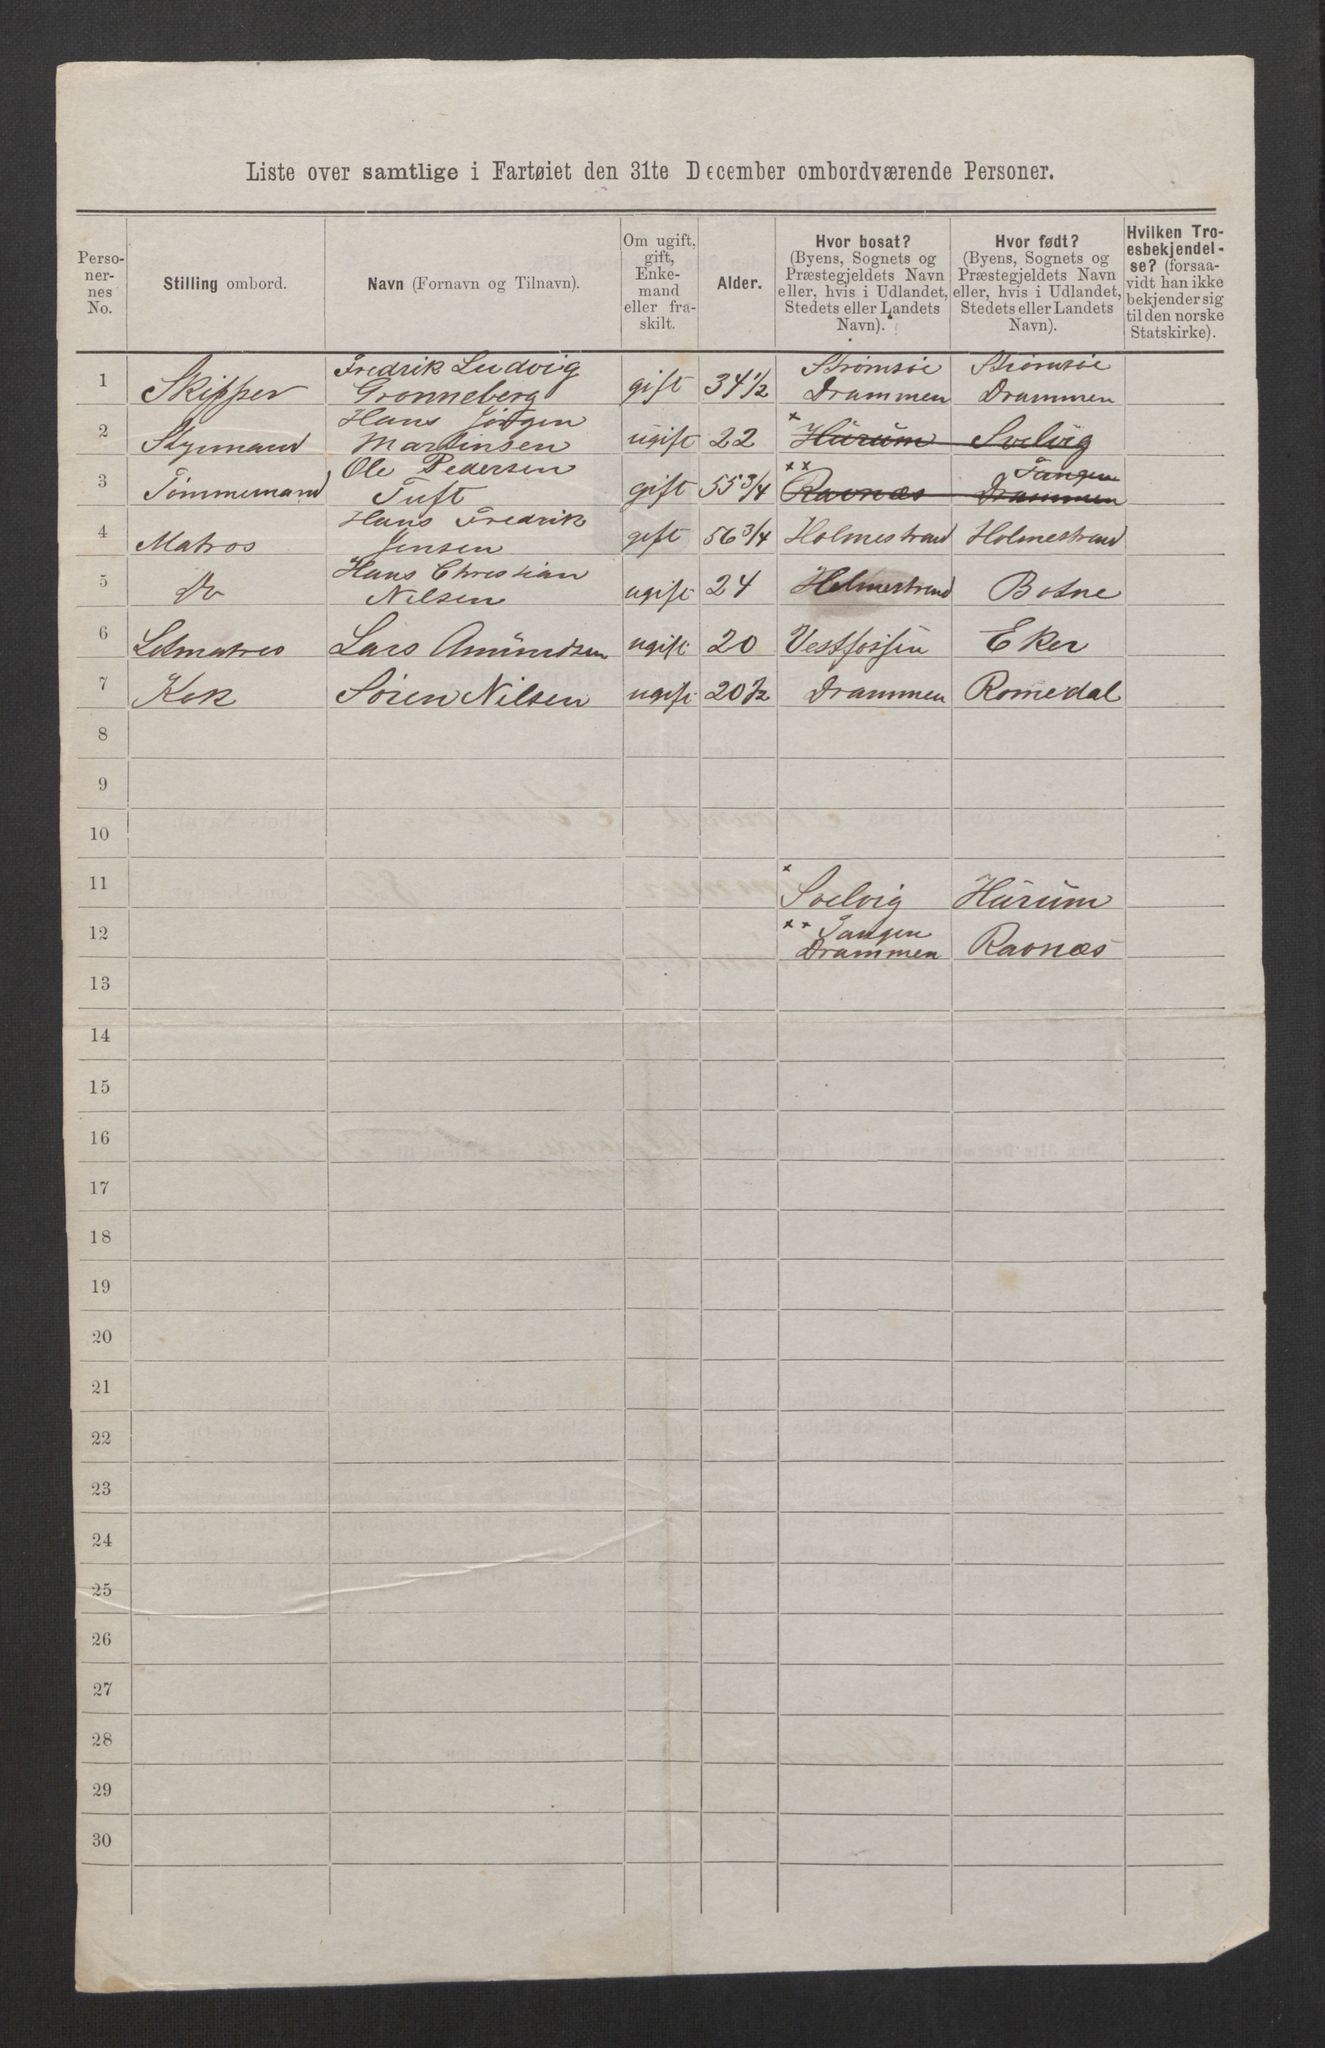 Liste over samtlige i Fartøiet den 31te December ombordværende Personer.
Perso-
ner-
nes
No.
Stilling ombord.
Navn (Fornavn og Tilnavn).
Om ugift,
gift,
Enke-
mand
eller fra-
skilt.
Alder.
Hvor bosat?
(Byens, Sognets og
Præstegjeldets Navn
eller, hvis i Udlandet,
Stedets eller Landets
Navn).
Hvor født?
(Byens, Sognets og
Præstegjeldets Navn
eller, hvis i Udlandet,
Stedets eller Landets
Navn).
Hvilken Tro-
esbekjendel-
se? (forsaa-
vidt han ikke
bekjender sig
til den norske
Statskirke).
Fredrik Ludvig Strømsøe Strømsøe
1 Skipper Gronneberg gift 34 1/2 Drammen Drammen
Hans Jørgen
2 Styrmand Martinsen ugift 22 × Hurum Svelvig
Ole Pedersen Tangen
3 Tømmermand Tuft gift 55 3/4 ×× Ravnæs Drammen
Hans Fredrik
4 Matros Jensen gift 56 3/4 Holmestrand Holmestrand
Hans Christian
5 Do Nilsen ugift 24 Holmestrand Botne
6 Letmatros Lars Amundsen ugift 20 Vestfossen Eker
7 Kok Sören Nilsen ugift 20 1/2 Drammen Romedal
8
9
10
11 × Svelvig Hurum
12 ×× Tangen
Drammen Ravnæs
13
14
15
16
17
18
19
20
21
22
23
24
25
26
27
28
29
30